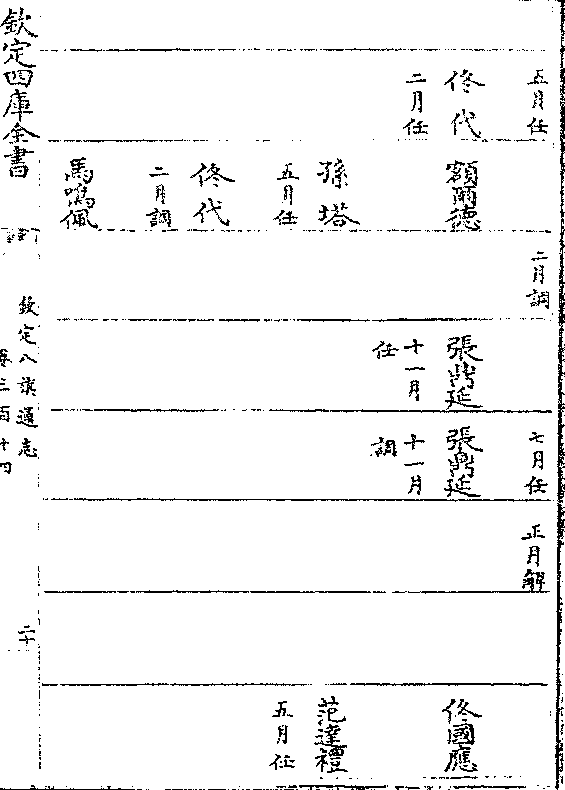 五月任
佟代
二月任
額爾德
孫塔
五月任
佟代
二月調
馬鳴佩
二月調
張鼎延
十一月
任
七月任
張鼎延
十一月
調
正月解
佟國應
范達禮
五月任
欽定四庫全書
欽定八旗通志
卷三百十四
二十